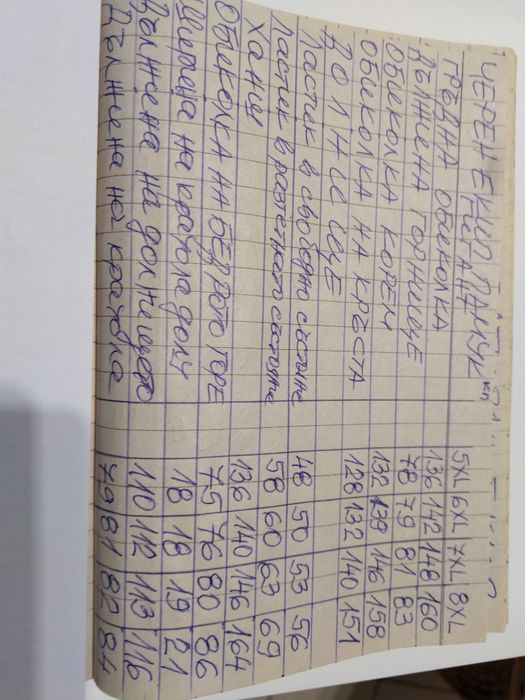 ЧЕРЕН ЕКИП ПАМУК
ПЕГАНТ кп
5XL 6XL 7XL 8XL
ГРЪДНА ОБИКОЛКА 136 142 148 160
ДЪЛЖЕНА ГОРНИЩЕ 78 79 81 83
ОБИКОЛКА КОРЕМ 132 139 146 158
ОБИКОЛКА НА КРЪСТА 128 132 140 151
ДОЛНИЩЕ
Ластек в свободно състояние 48 50 53 56
Ластек в разтегнато състояние 58 60 63 69
ХАНШ 136 140 146 164
ОБИКОЛКА НА БЕДРОТО ГОРЕ 75 76 80 86
Ширина на крачола долу 18 18 19 21
Дължена на долнището 110 112 113 116
Дължена на крачола 79 81 82 84